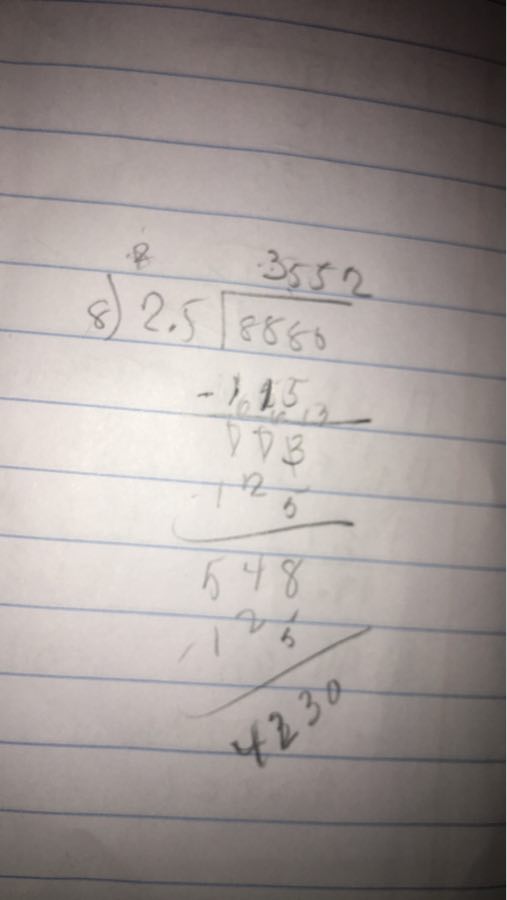 3552
8) 2.5 8880
- 125
773
125
548
125
4230